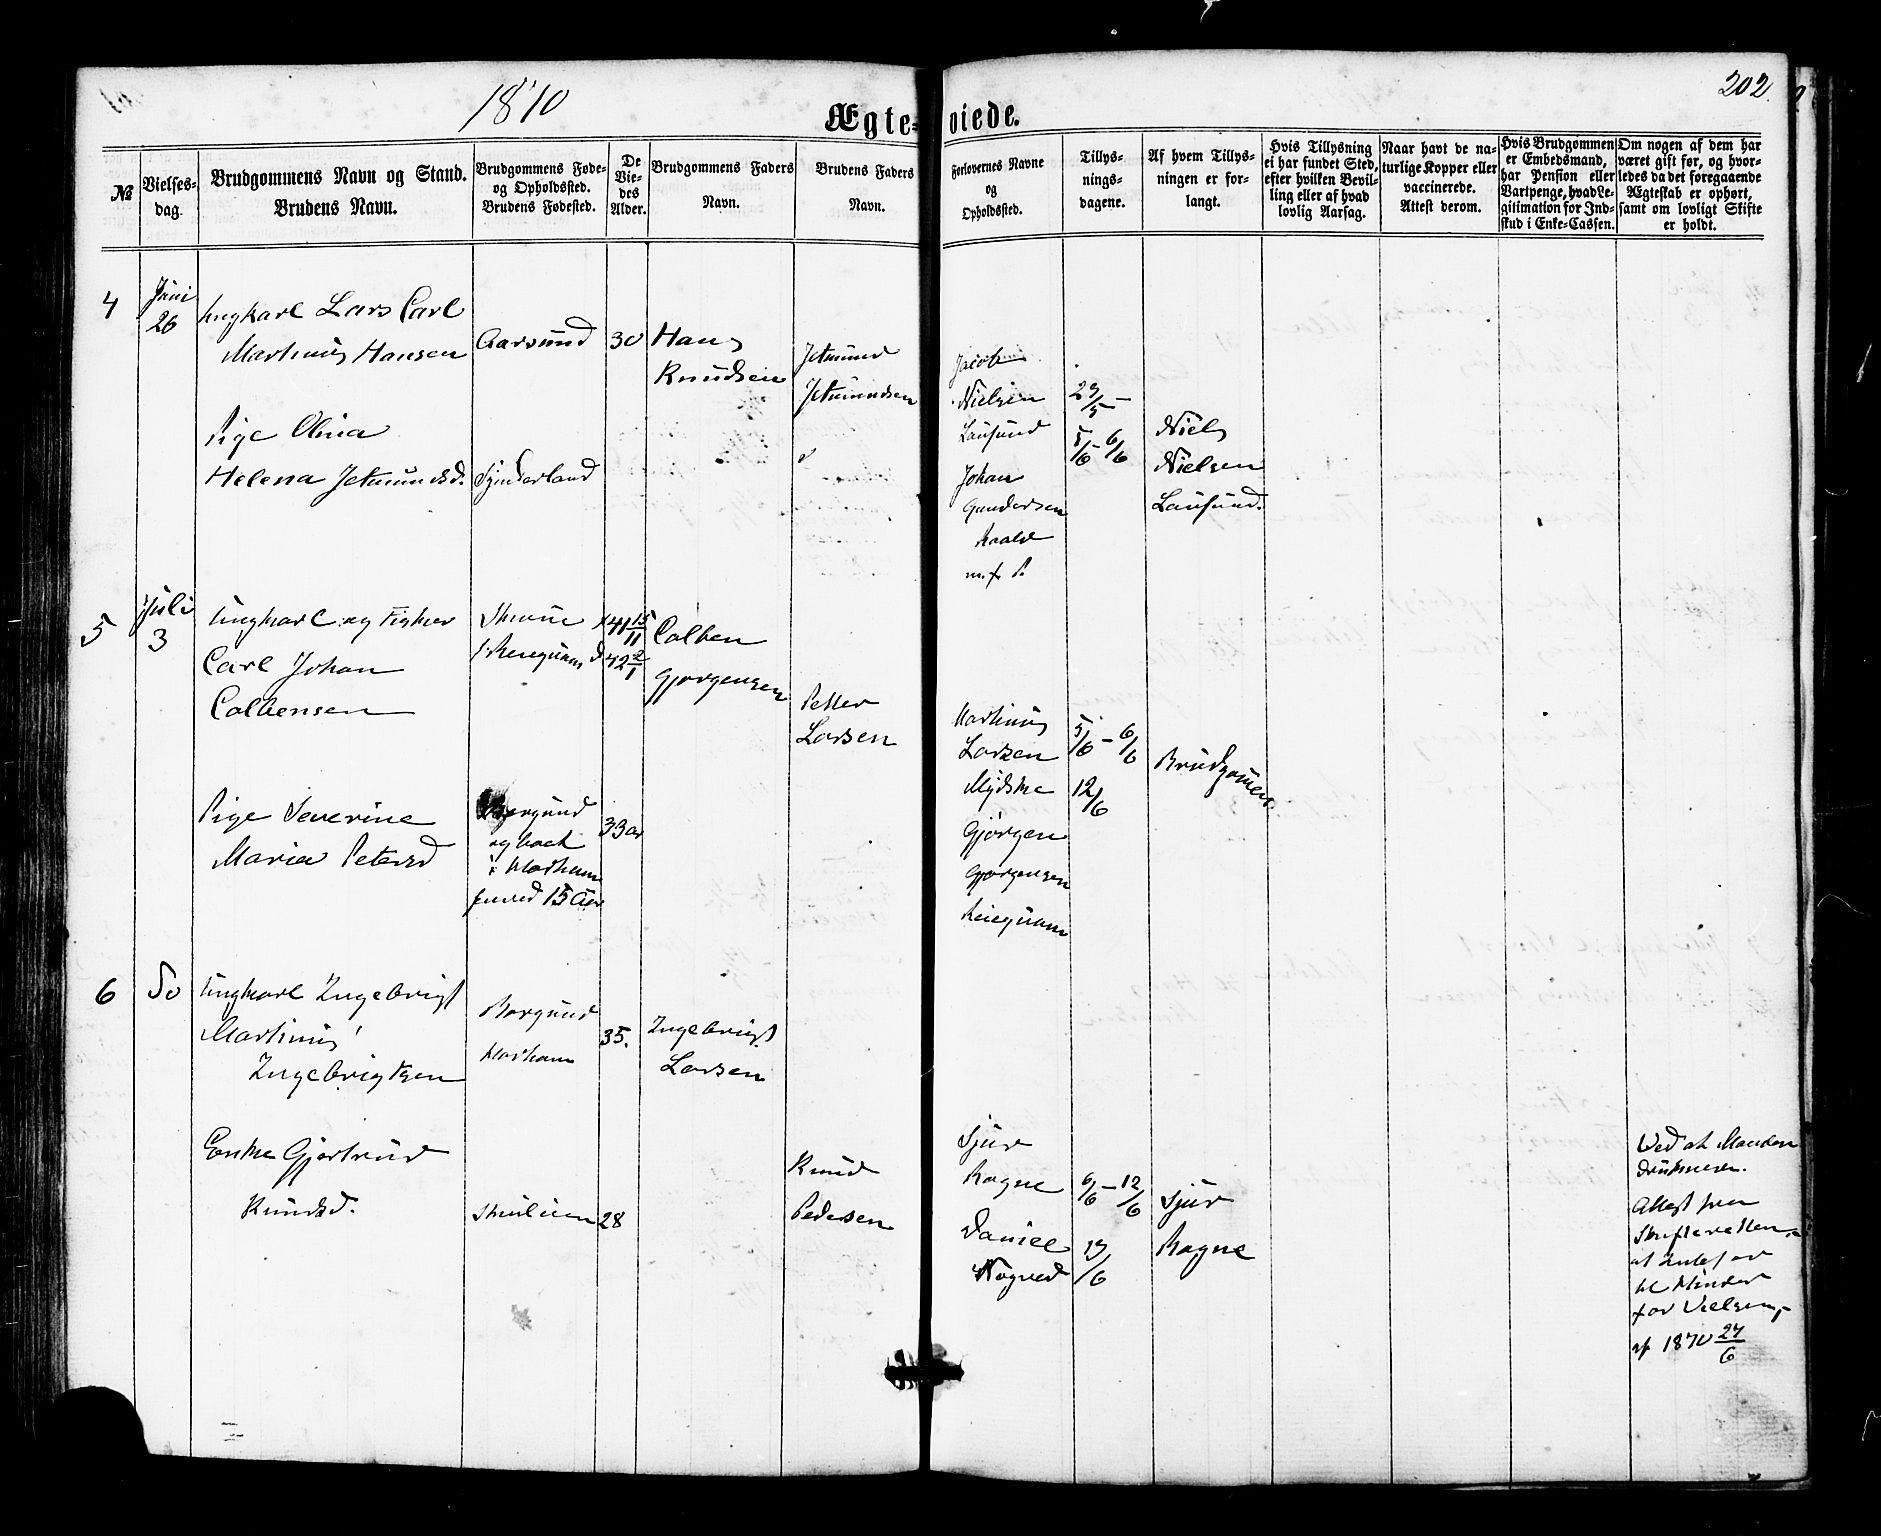 1870
202.
Ægte-
viede.
№
Vielses-
dag.
Brudgommens Navn og Stand.
Brudens Navn.
Brudgommens Føde-
og Opholdssted.
Brudens Fødested.
De
Vie-
des
Alder.
Brudgommens Faders
Navn.
Brudens Faders
Navn.
Forlovernes Navne
og
Opholdssted.
Tillys-
nings-
dagene.
Af hvem Tillys-
ningen er for-
langt.
Hvis Tillysning
ei har fundet Sted,
efter hvilken Bevil-
ling eller af hvad
lovlig Aarsag.
Naar havt de na-
turlige Kopper eller
vaccinerede.
Attest derom.
Hvis Brudgommen
er Embedsmand,
har Pension eller
Vartpenge, hvad Le-
gitimation for Ind-
skud i Enke-Cassen.
Om nogen af dem har
været gift før, og hvor-
ledes da det foregaaende
Ægteskab er ophørt,
samt om lovligt Skifte
er holdt.
4
Juni
26
Ungkarl Lars Carl
Martinus Hansen
Aarsund
30
Hans
Knudsen
Jetmund
Jetmundsen
Pige Olina
Helena Jetmundsd.
Synderland
Jacob
Nielsen
Lausund
Johan
Gundersen
Raald
29/5 -
5/6 - 6/6
Niels
Nielsen
Lausund.
5
Juli
3
Ungkarl og Fisker
Carl Johan
Colbensen
41 15/11
42 2/1
Colben
Gjørgensen
Petter
Larsen
Pige Severine
Maria Petersd
Borgund
og boet
i Harham
15 Aar
33 ar
Martinus
Larsen
Mydske
Gjørgen
Gjørgensen
5/6 - 6/6
12/6
Brudgomen.
6
Do
Ungkarl Ingebrigt
Martinus
Ingebrigtsen
Borgund
Harham
35.
Ingebrigt
Larsen
Enke Gjertrud
Knudsd.
28
Knud
Pedersen
Sjur
Rogne
Daniel
Nogved
6/6 - 12/6
19/6
Sjur
Rogne
Ved at Manden
druknede.
Attest fra
Skifteretten
at Intet er
til Hinder
for Vielsen,
af 1870 27/6